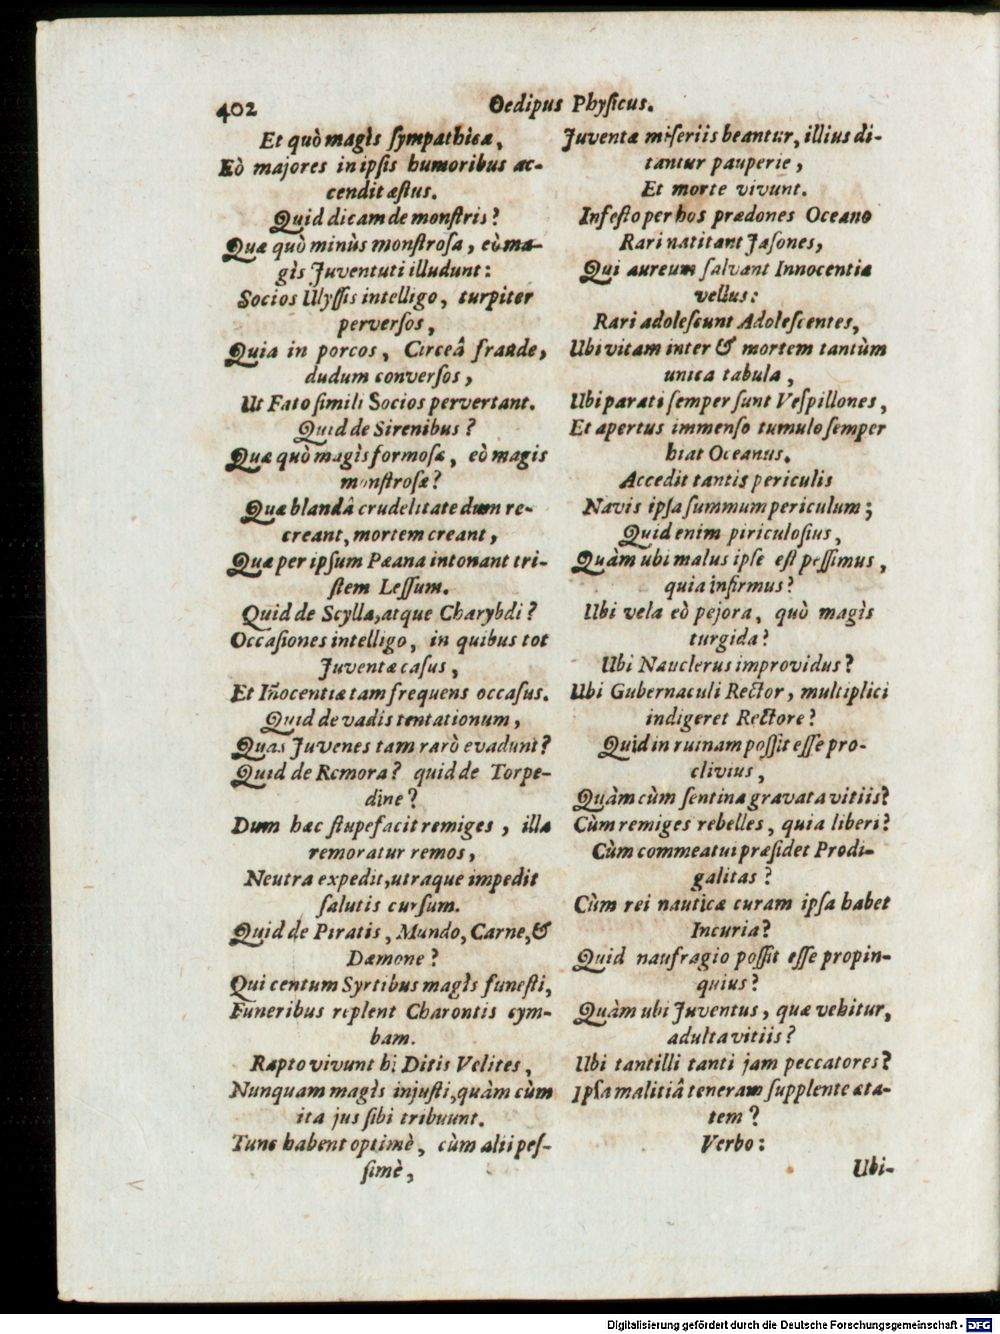 402
Oedipus Physicus.
Et quò magìs sympathica,
Eò majores in ipsis humoribus ac-
cendit æstus.
Quid dicam de monstris?
Quæ quò minùs monstrosa, eò ma-
gìs Juventuti illudunt:
Socios Ulyssis intelligo, turpiter
perversos,
Quia in porcos, Circeâ fraude,
dudum conversos,
Ut Fato simili Socios pervertant.
Quid de Sirenibus?
Quæ quò magìs formosæ, eò magis
monstrosæ?
Quæ blandâ crudelitate dum re-
creant, mortem creant,
Quæ per ipsum Pæana intonant tri-
stem Lessum.
Quid de Scylla, atque Charybdi?
Occasiones intelligo, in quibus tot
Juventæ casus,
Et Iñocentiæ tam frequens occasus.
Quid de vadis tentationum,
Quas Juvenes tam rarò evadunt?
Quid de Remora? quid de Torpe-
dine?
Dum hæc stupefacit remiges, illa
remoratur remos,
Neutra expedit, utraque impedit
salutis cursum.
Quid de Piratis, Mundo, Carne, &
Dæmone?
Qui centum Syrtibus magìs funesti,
Funeribus replent Charontis cym-
bam.
Rapto vivunt hi Ditis Velites,
Nunquam magìs injusti, quàm cùm
ita jus sibi tribuunt.
Tunc habent optimè, cùm alii pes-
simè,
Juventæ miseriis beantur, illius di-
tantur pauperie,
Et morte vivunt.
Infesto per hos prædones Oceano
Rari natitant Jasones,
Qui aureum salvant Innocentiæ
vellus:
Rari adolescunt Adolescentes,
Ubi vitam inter & mortem tantùm
unica tabula,
Ubi parati semper sunt Vespillones,
Et apertus immenso tumulo semper
hiat Oceanus.
Accedit tantis periculis
Navis ipsa summum periculum;
Quid enim piriculosius,
Quàm ubi malus ipse est pessimus,
quia infirmus?
Ubi vela eò pejora, quò magìs
turgida?
Ubi Nauclerus improvidus?
Ubi Gubernaculi Rector, multiplici
indigeret Rectore?
Quid in ruinam possit esse pro-
clivius,
Quàm cùm sentina gravata vitiis?
Cùm remiges rebelles, quia liberi?
Cùm commeatui præsidet Prodi-
galitas?
Cùm rei nauticæ curam ipsa habet
Incuria?
Quid naufragio possit esse propin-
quius?
Quàm ubi Juventus, quæ vehitur,
adulta vitiis?
Ubi tantilli tanti jam peccatores?
Ipsa malitiâ teneram supplente æta-
tem?
Verbo:
Ubi-
Digitalisierung gefördert durch die Deutsche Forschungsgemeinschaft - DFG